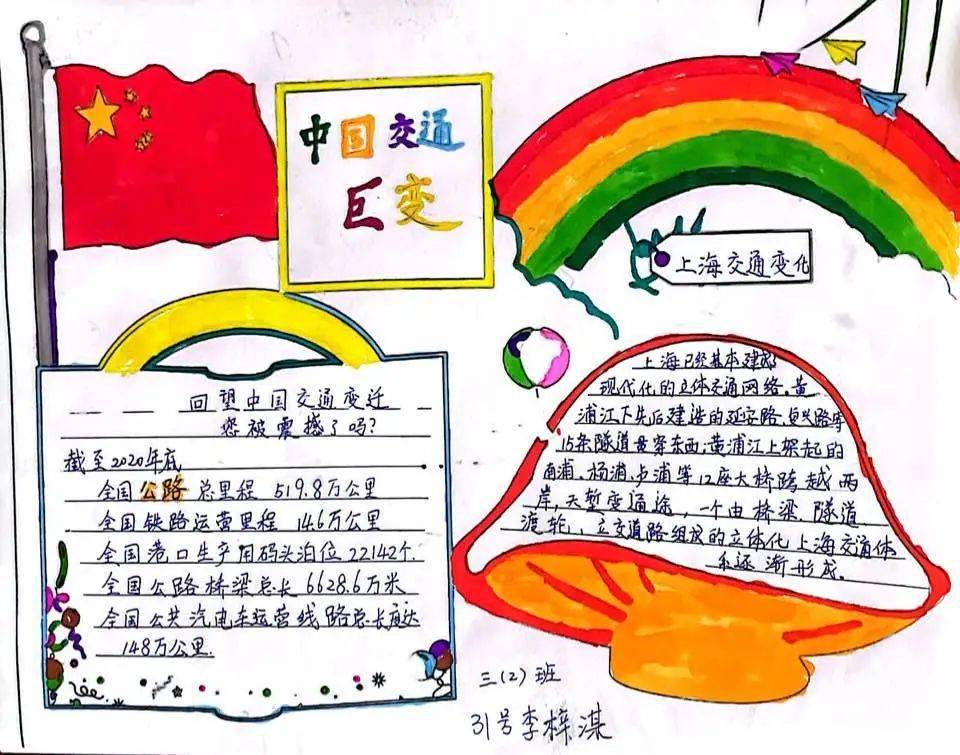 中国交通
巨变
上海交通变化
回望中国交通变迁
您被震撼了吗?
截至2020年底
全国公路总里程 519.8万公里
全国铁路运营里程 14.6万公里
全国港口生产用码头泊位22142个.
全国公路桥梁总长6628.6万米
全国公共汽电车运营线路总长度达
148万公里.
上海已经基本建成
现代化的立体交通网络。黄
浦江下先后建造的延安路、复兴路等
15条隧道贯穿东西;黄浦江上架起的
南浦、杨浦、卢浦等12座大桥跨越两
岸,天堑变通途,一个由桥梁、隧道
渡轮、立交道路组成的立体化上海交通体
系逐渐形成。
三(2)班
31号李梓淇